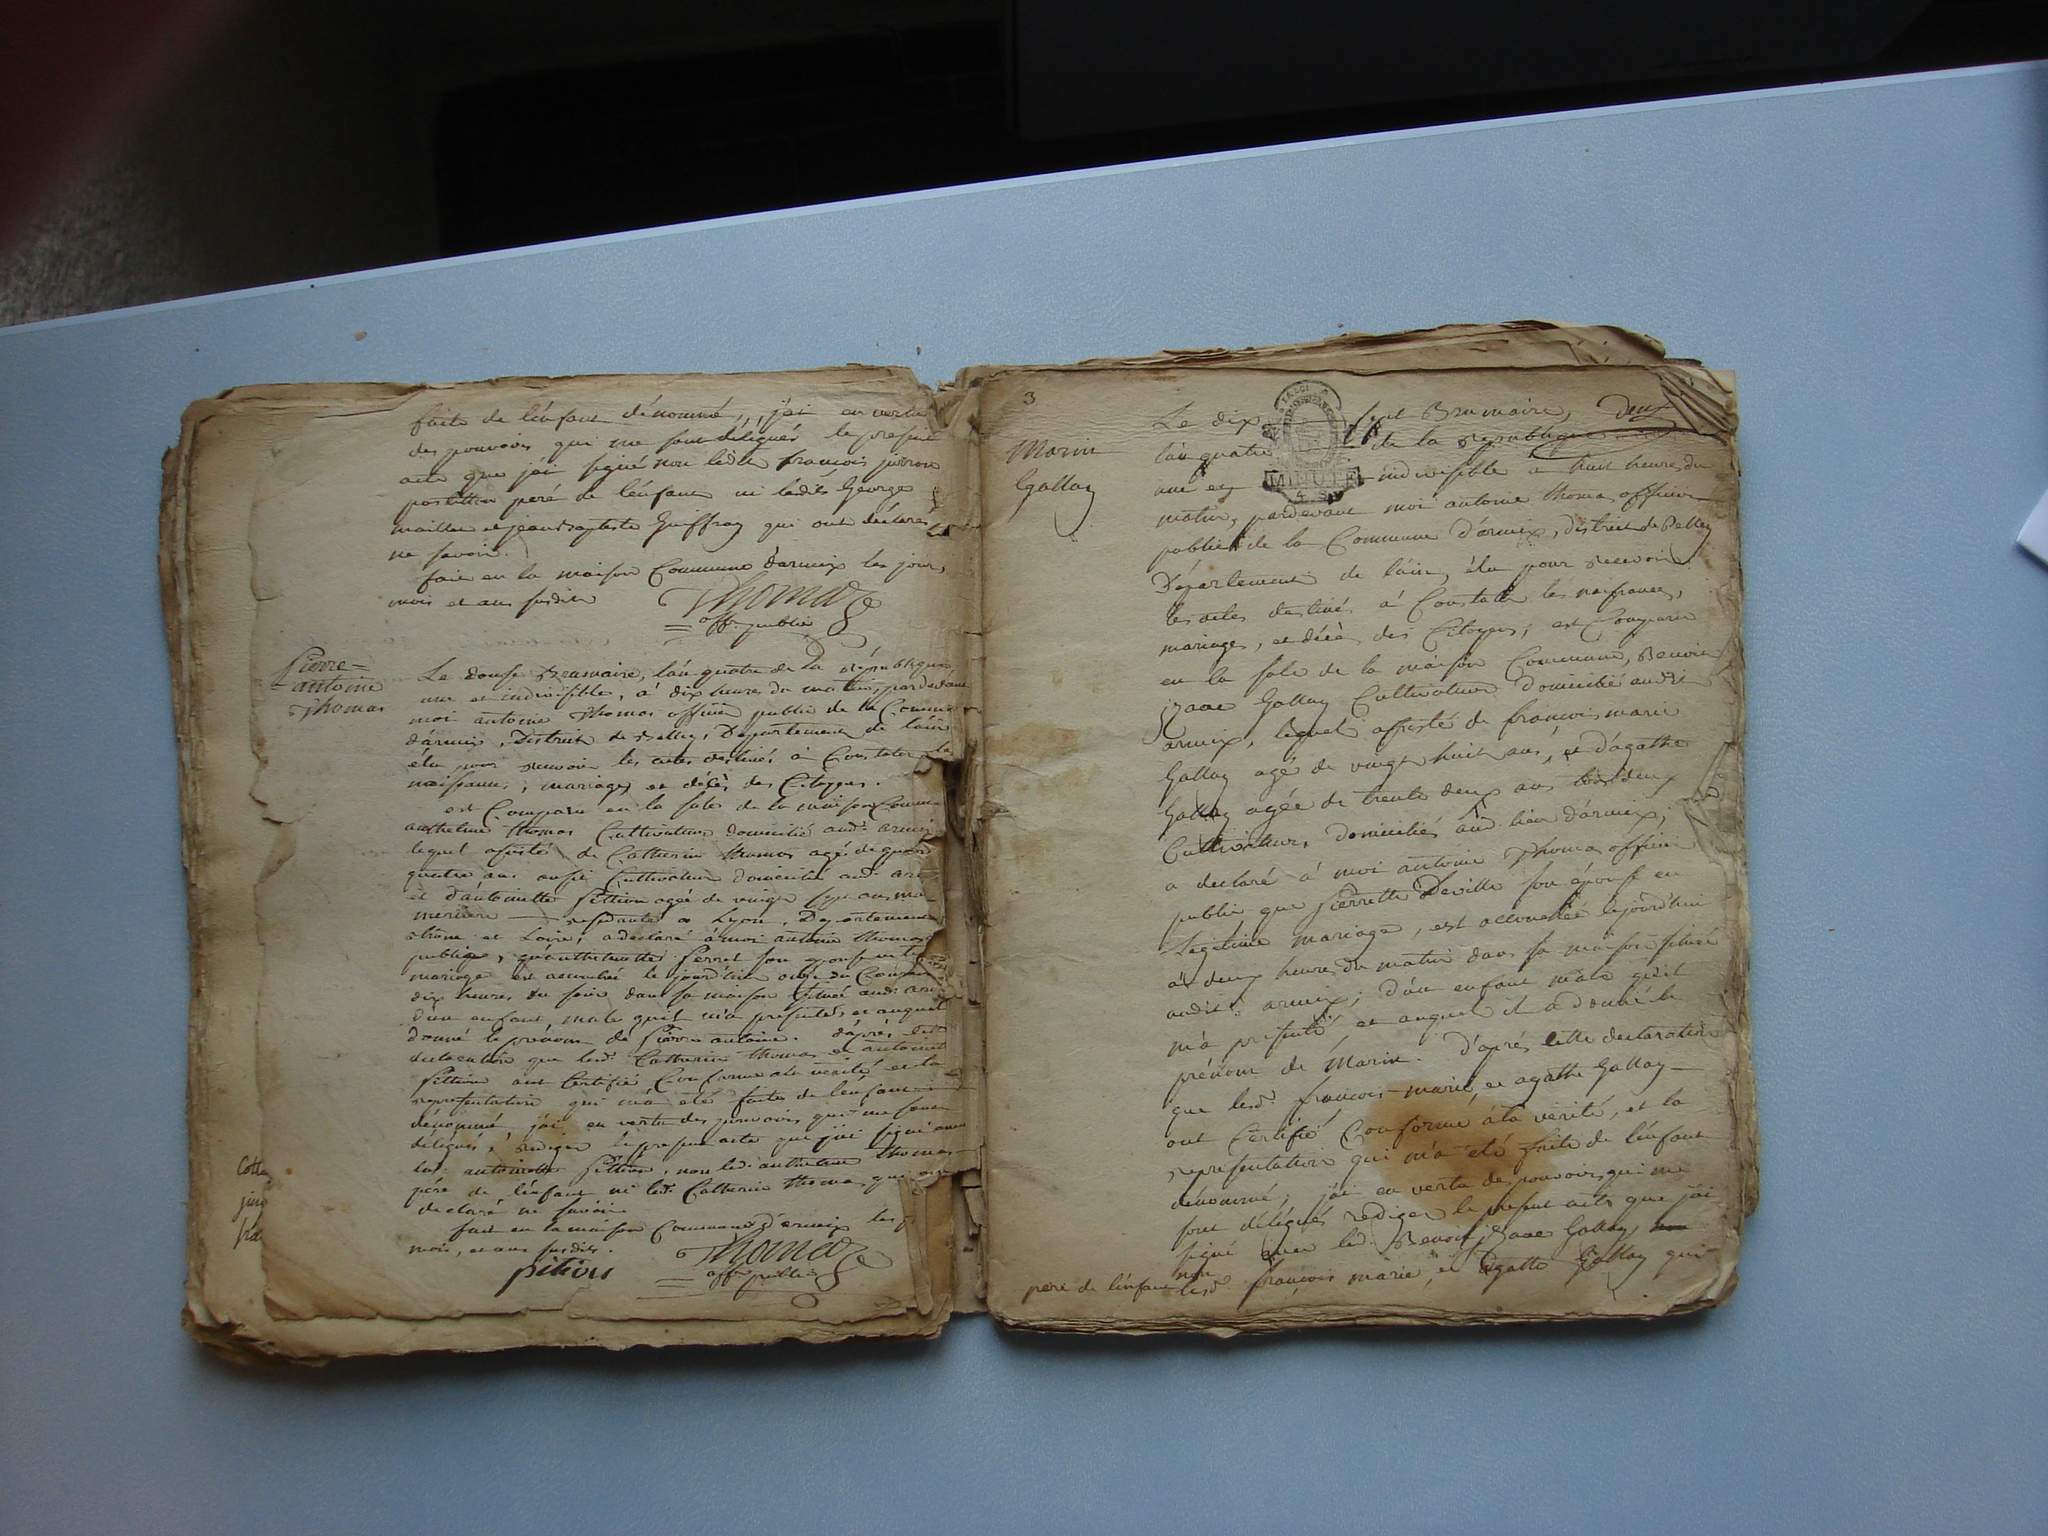 faite de l'enfant dénommé, j'ai en vertu
des pouvoirs qui me sont délégués le présent
acte que j'ai signé non ledit françois
postillon peré de l'enfant ni lédits George
maillan et jean Baptiste Guiffray qui ont déclaré
ne savoir.
fait en la maison Commune d'armix les jour,
mois et ans susdits
Thomas
off. public
Pierre=
=antoine
Thomas
Le douse Brumaire, l'an quatre de la République
une et indivisible, á dix heures du matin, pardevant
moi antoine Thomas officier public de la Commune
d'armix, District de Belley, Département de l'ain
élu pour recevoir les actes destinés á Constater la
naissance, mariages et décès des Citoyens.
est Comparu en la sale de la maison Commune
anthelme Thomas Cultivateur domicilié aud. armix
lequel assisté de Catherine Thomas agé de quarante
quatre ans aussi Cultivateur domicilié aud. ar
et d'antoinette Pittion agée de vingt sept ans
residante a Lyon, Departement
rhône et Loire, a declaré à moi antoine thomas
public, Perret son epouse en
mariage est accouchée le jourd'hier onze du Courant
dix heures du soir dans sa maison située aud. armix
d'un enfant male qu'il m'a presenté et auquel
donné le prénom de Pierre antoine. d'après cette
declaration que les d. Catherine Thomas et antoinette
Pittion ont Certifié Conforme a la vérité, et la
representation qui m'a été faites de l'enfant
dénommé j'ai en vertu des pouvoirs qui me sont
délégués, rédiger le present acte que j'ai signé avec
lad. antoinette Pittion, non led. anthelme Thomas
pére de l'enfant ni lad. Catherine Thomas qui ont
declaré ne savoir
fait en la maison Commune d'armix les j
mois, et ans susdits.
Thomas
off. public
pition
Cotte
3
Marin
Gallay
Le dix sept Brumaire, deux
l'an quatre de la République
une et indivisible a huit heures du
matin, pardevant moi antoine Thomas officier
public de la Commune d'armix, district de Belley
Département de l'ain, élu pour recevoir
les actes destinés á Constater les naissances,
mariages, et décès des Citoyens, est Comparu
en la sale de la maison Commune, Benoit
izaac Gallay Cultivateur domicilié audit
armix, lequel assisté de françois marie
Gallay agé de vingt huit ans, et d'agathe
Gallay agée de trente deux ans tous deux
Cultivateurs domiciliés aud. lieu d'armix,
a declaré á moi antoine Thomas officier
public que Pierrette Deville son épouse en
Légitime mariage, est accouchée lejourd'hui
á deux heures du matin dans sa maison située
audit armix, d'un enfant mâle qu'il
m'a presenté, et auquel il a donné le
prénom de Marin. D'aprés cette declaration
que lesd. françois-marie, et agathe Gallay
ont Certifié Conforme á la vérité, et la
représentation qui m'a été faite de l'enfant
dénommé, j'ai en vertu des pouvoirs qui me
sont délégués rediger le present acte que j'ai
signé avec led. Benoit izaac Gallay,
pere de l'enfant non lesd. françois marie, et agathe Gallay qui